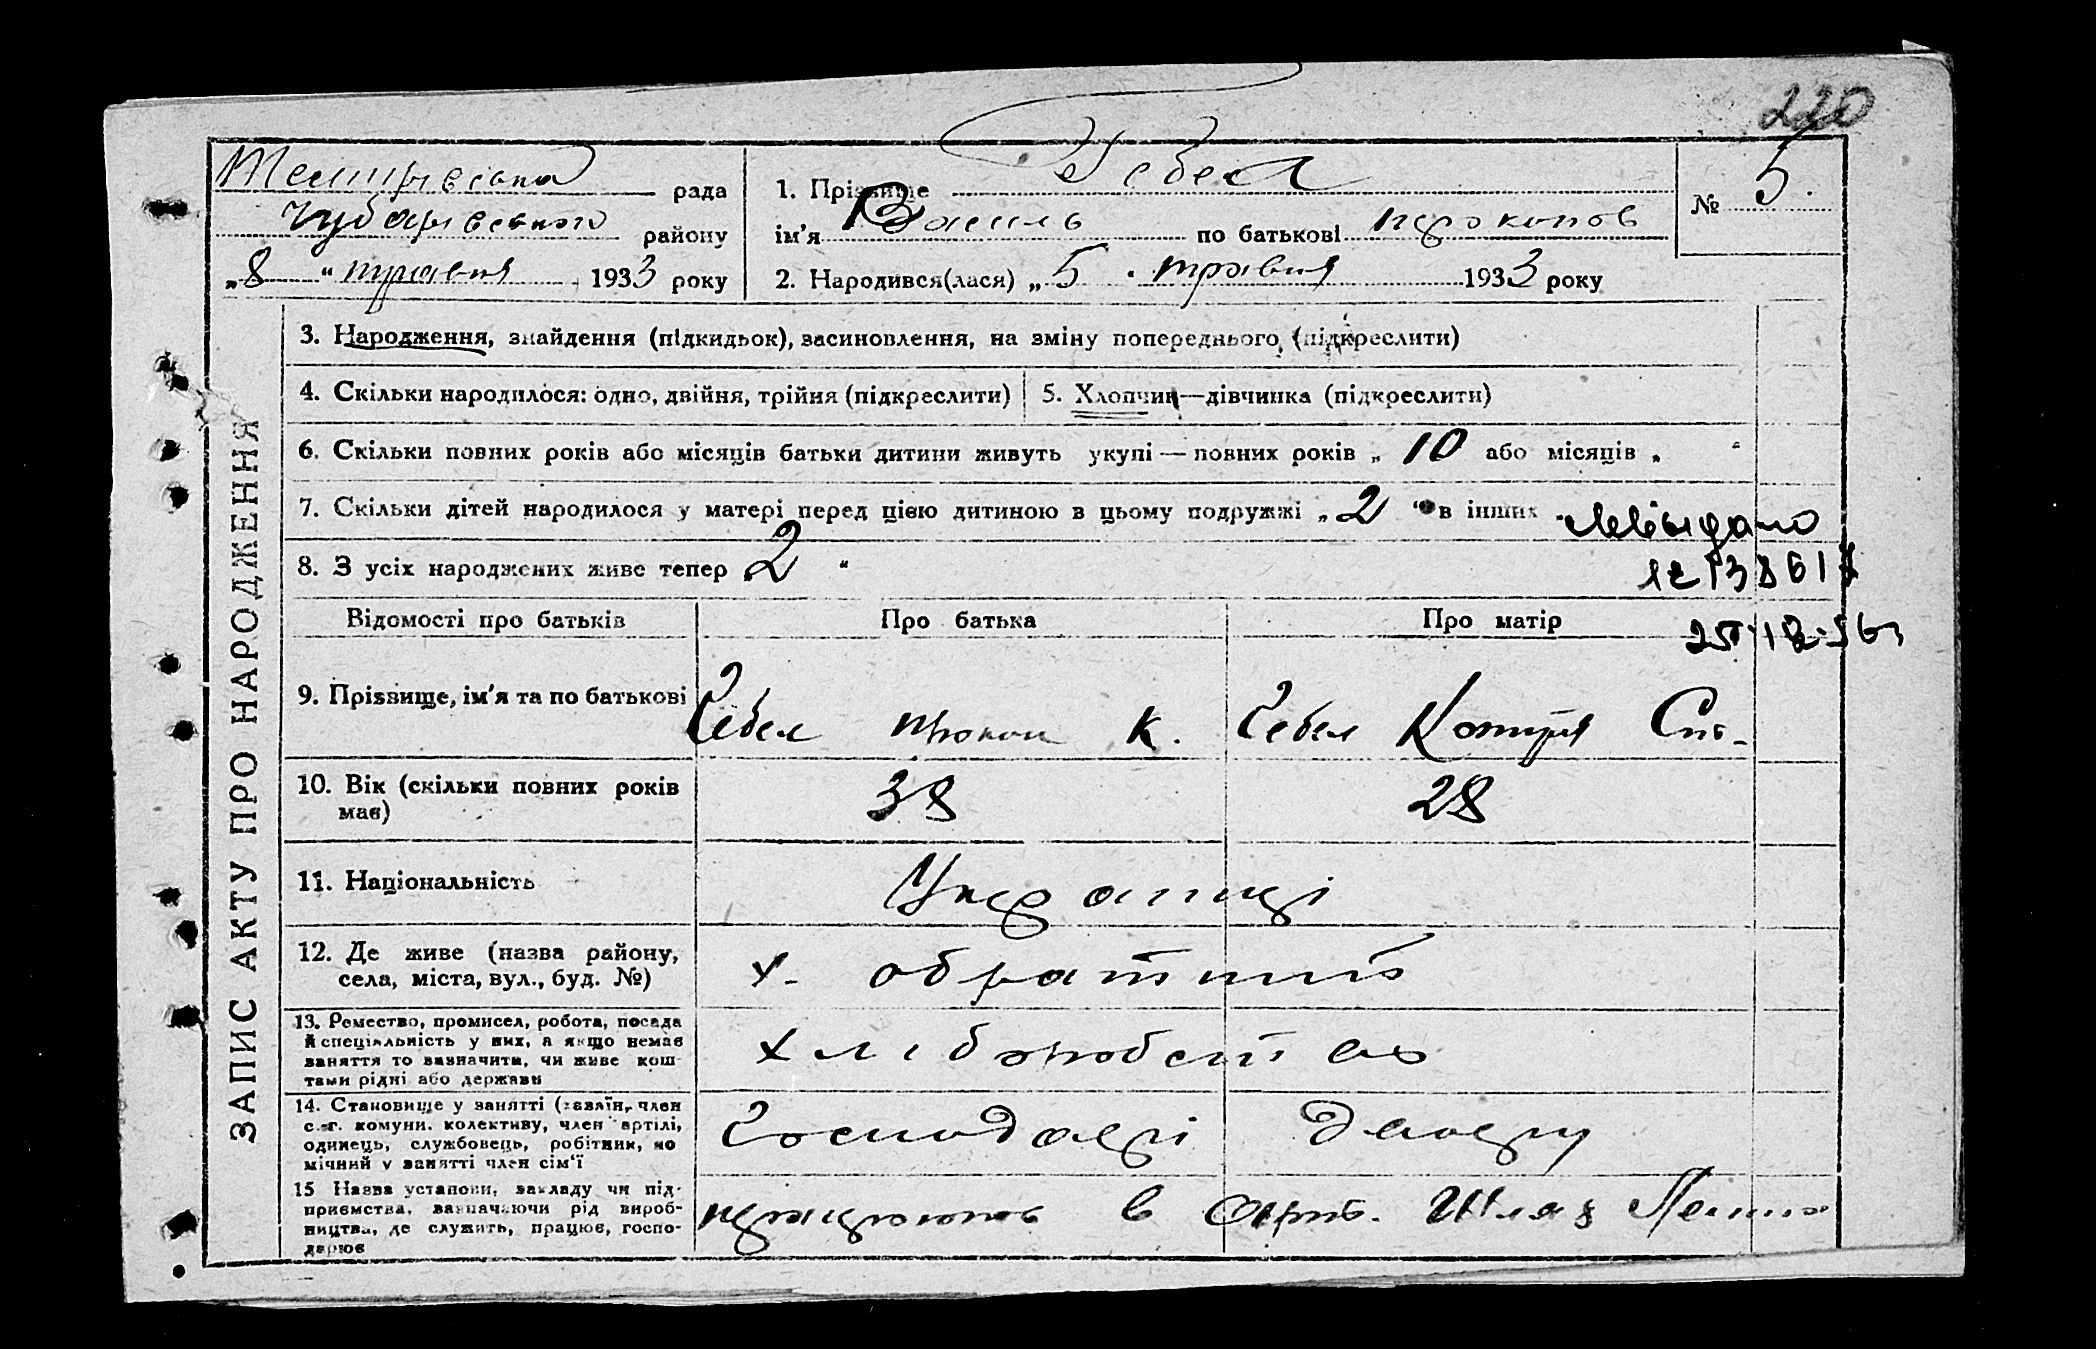 220
Темирівська рада
Чубарівського району
„8“ травня 1933 року
1. Прізвище Гебел
ім'я Василь по батькові Прокопов
2. Народився(лася) „5“ травня 1933 року
№ 5.
ЗАПИС АКТУ ПРО НАРОДЖЕННЯ
3. Народження, знайдення (підкидьок), засиновлення, на зміну попереднього (підкреслити)
4. Скільки народилося: одно, двійня, трійня (підкреслити)
5. Хлопчик—дівчинка (підкреслити)
6. Скільки повних років або місяців батьки дитини живуть укупі — повних років „10 або місяців „ “
7. Скільки дітей народилося у матері перед цією дитиною в цьому подружжі „2“ в інших
8. З усіх народжених живе тепер „2“
Відомості про батьків Про батька Про матір
9. Прізвище, ім'я та по батькові Гебел Прокоп К. Гебел
10. Вік (скільки повних років має) 38 28
11. Національність Українці
12. Де живе (назва району, села, міста, вул., буд. №) х. Обратний
13. Ремество, промисел, робота, посада й спеціяльність у них, а якщо немає заняття то зазначити, чи живе коштами рідні або держави хлібороб
14. Становище у занятті (хазяїн, член с.-г. комуни, колективу, член артілі, одинець, службовець, робітник, помічний у занятті член сім'ї Господарі двору
15 Назва установи, закладу чи підприємства, зазначаючи рід виробництва, де служить, працює, господарює працюють в арт. Шлях Леніна